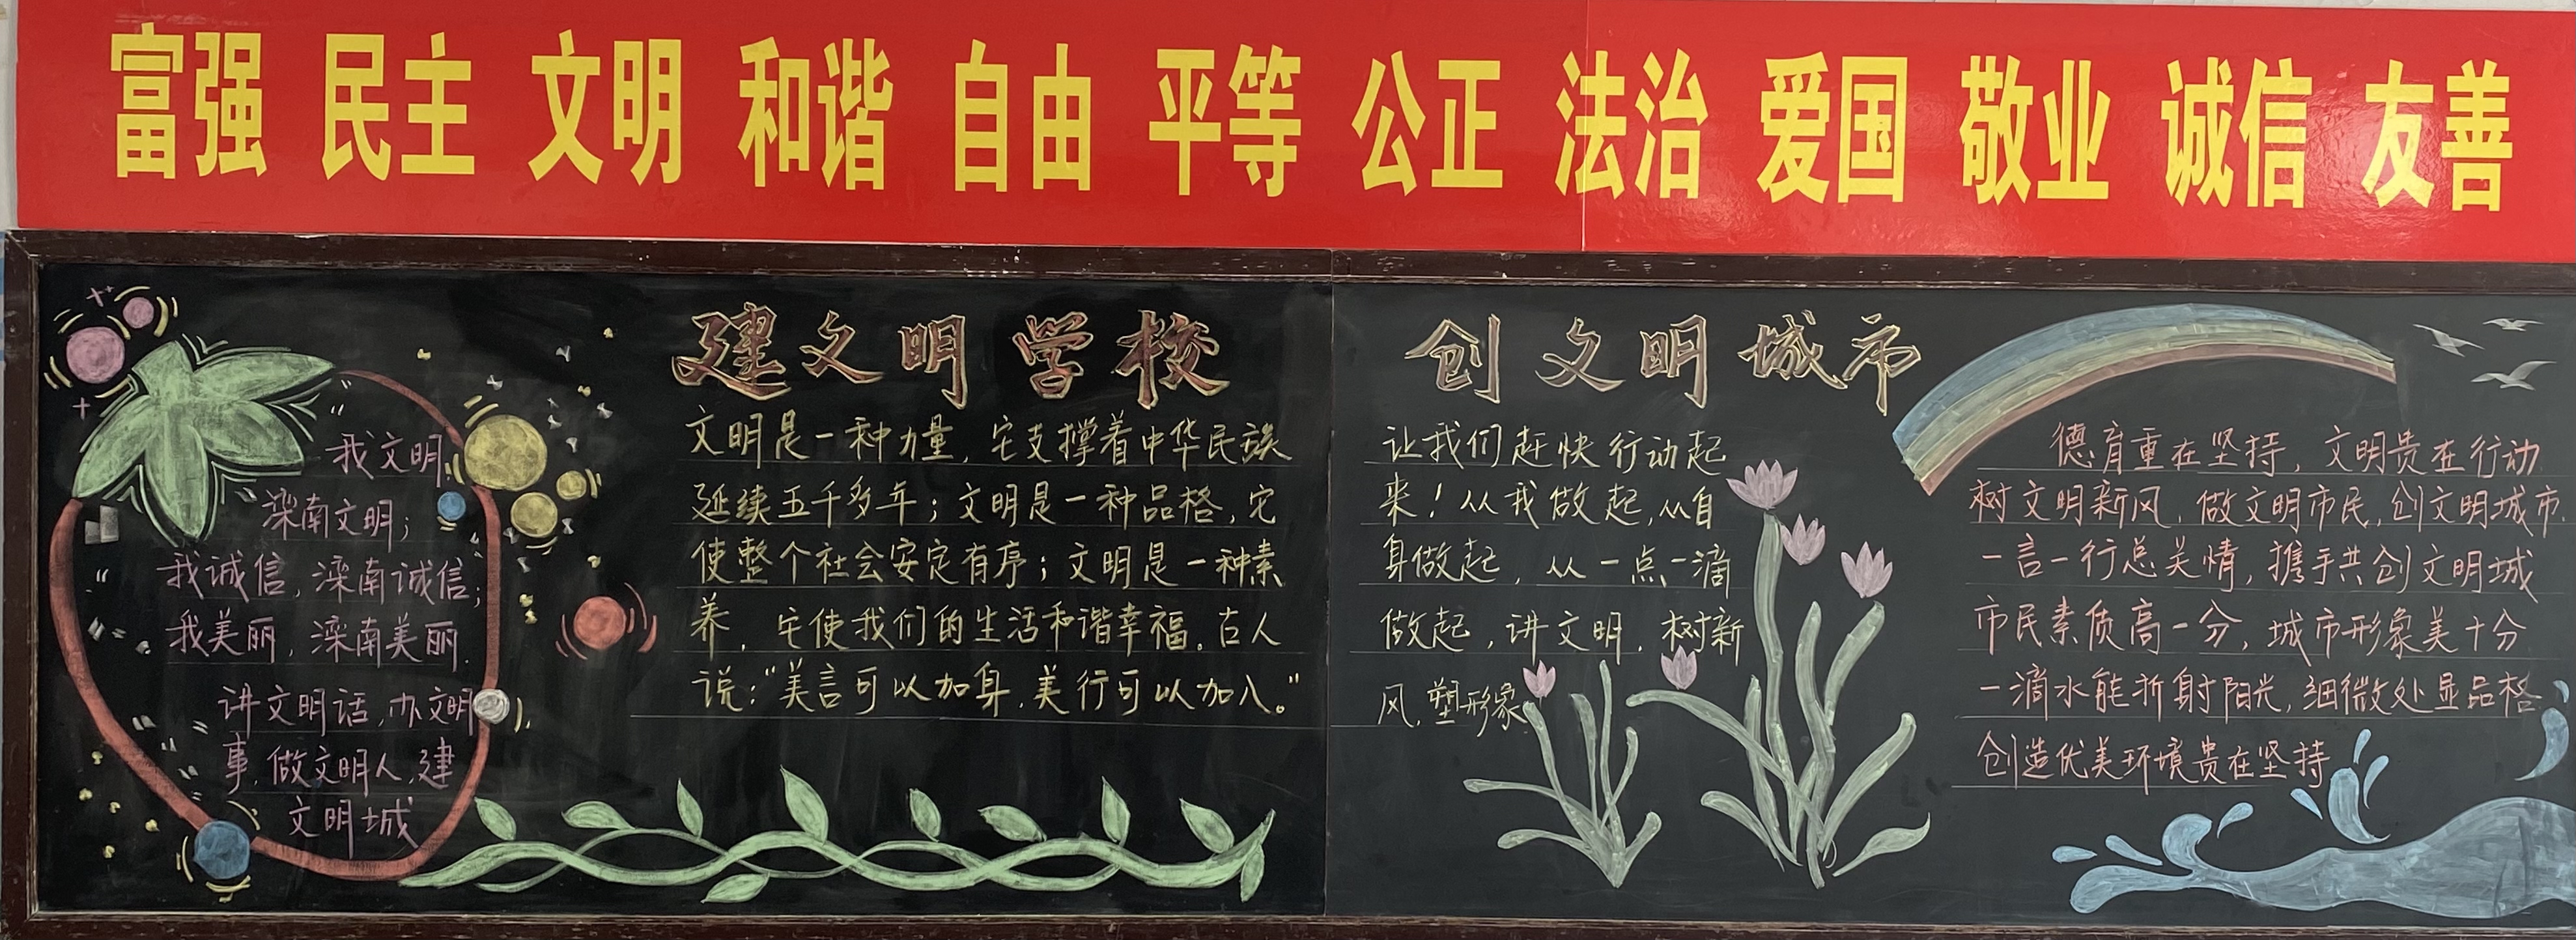 富强 民主 文明 和谐 自由 平等 公正 法治 爱国 敬业 诚信 友善
我文明
滦南文明；
我诚信，滦南诚信；
我美丽，滦南美丽.
讲文明话，办文明
事，做文明人，建
文明城
建文明学校
文明是一种力量，它支撑着中华民族
延续五千多年；文明是一种品格，它
使整个社会安定有序；文明是一种素
养，它使我们的生活和谐幸福。古人
说：“美言可以加身，美行可以加人。”
创文明城市
让我们赶快行动起
来！从我做起，从自
身做起，从一点一滴
做起，讲文明，树新
风，塑形象
德育重在坚持，文明贵在行动
树文明新风，做文明市民，创文明城市
一言一行总关情，携手共创文明城
市民素质高一分，城市形象美十分
一滴水能折射阳光，细微处显品格
创造优美环境贵在坚持